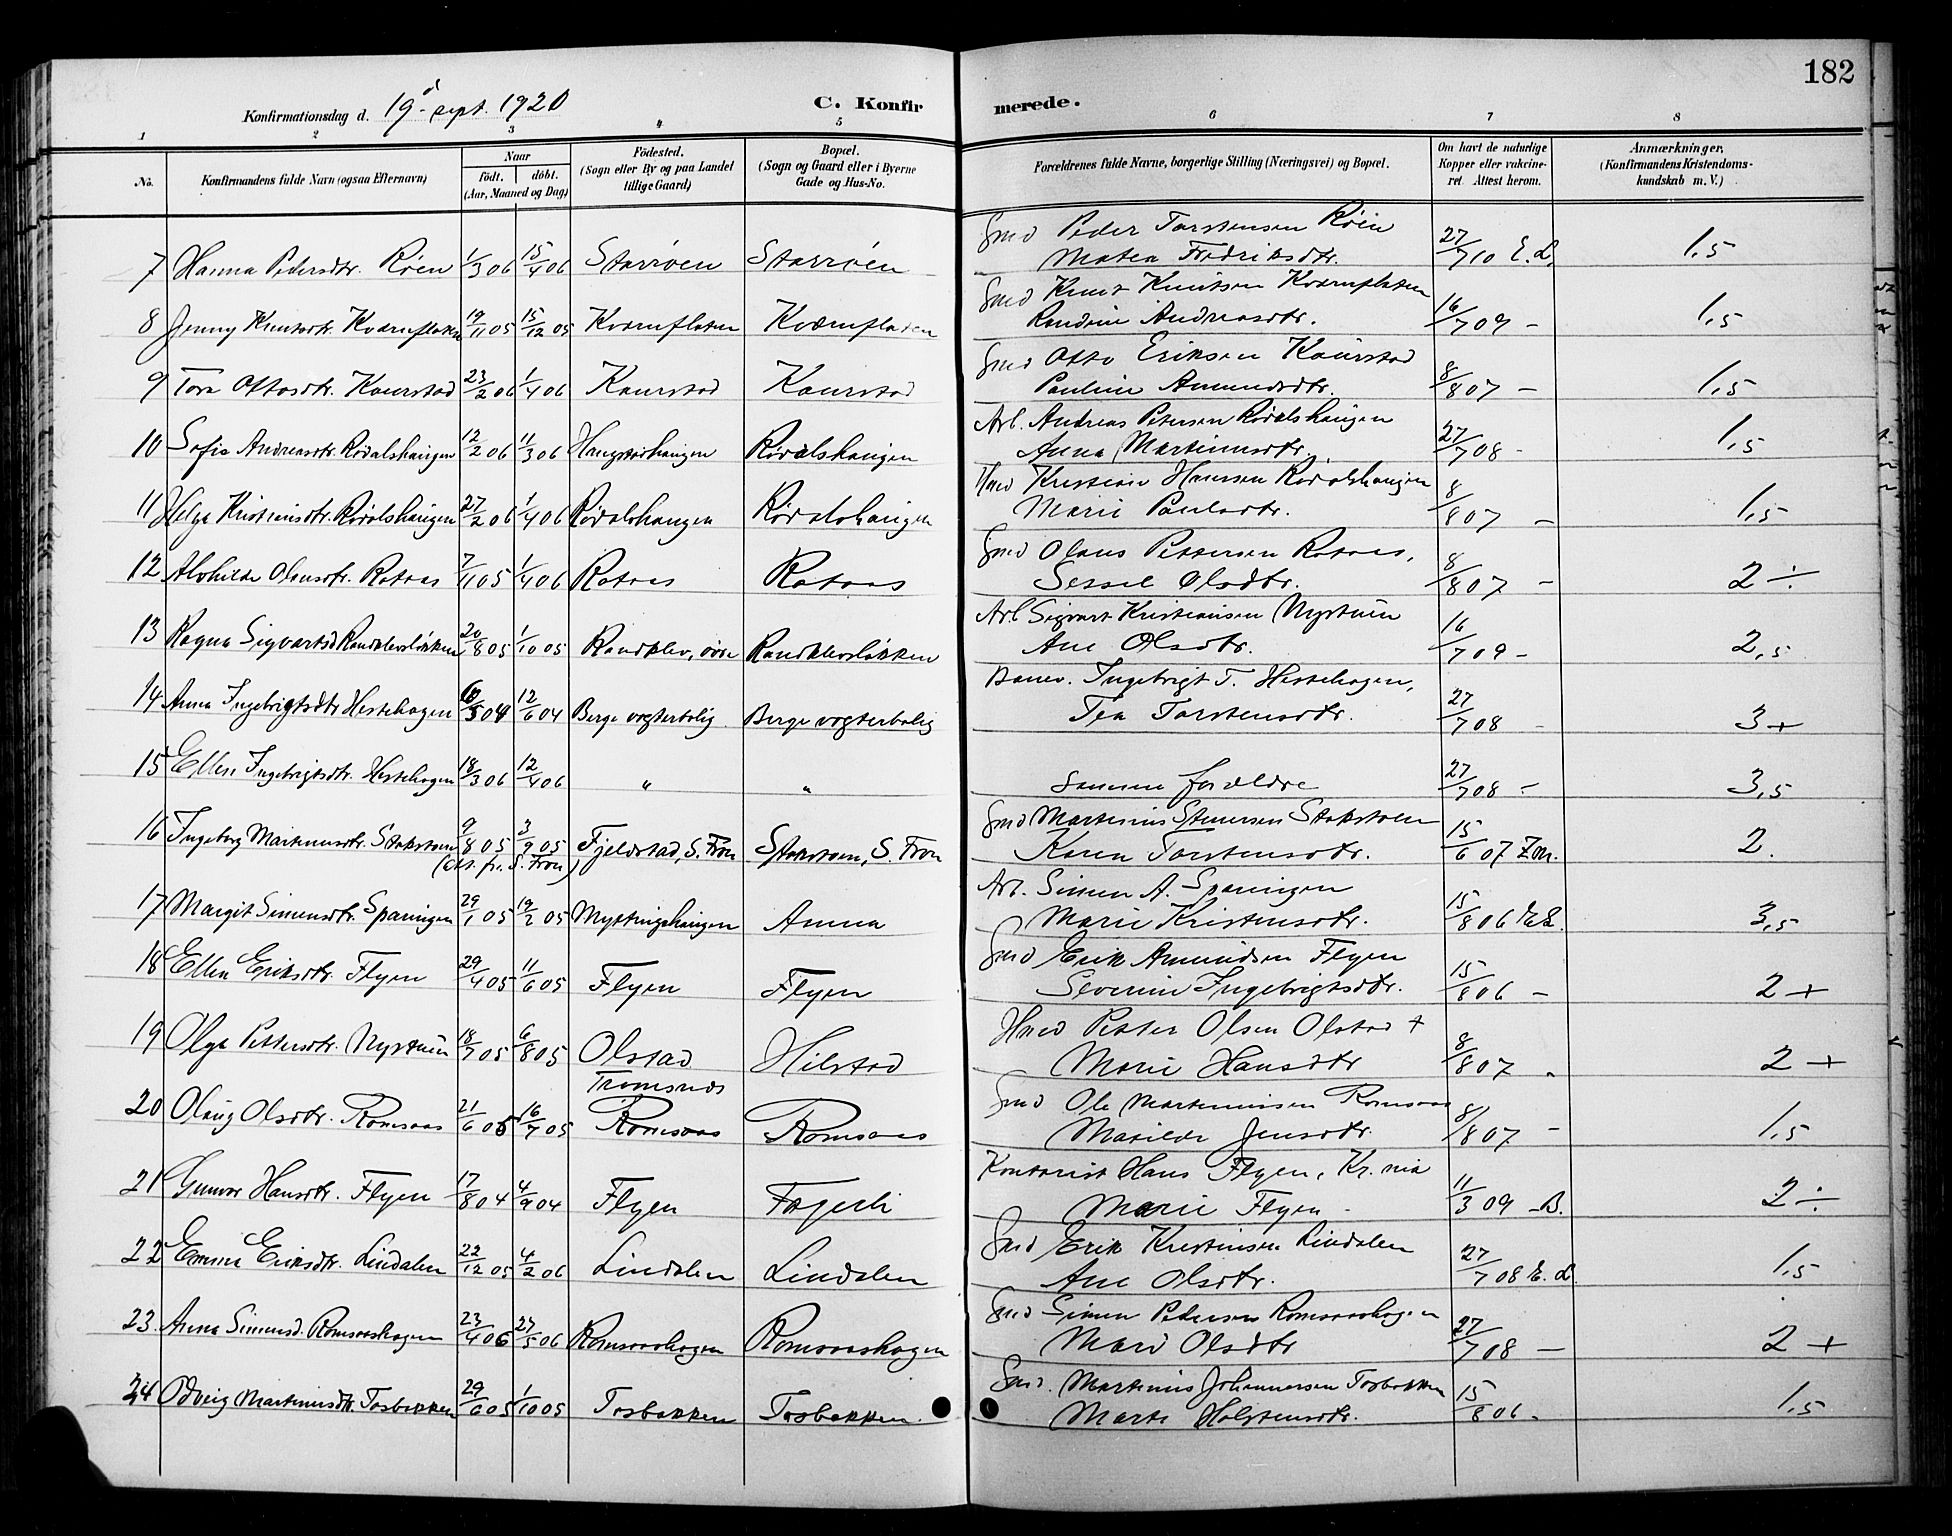 182
Konfirmationsdag d. 19. sept. 1920
C. Konfirmerede.
1 2 3 4 5 6 7 8
No.
Konfirmandens fulde Navn (ogsaa Efternavn)
Naar
födt. döbt.
(Aar, Maaned og Dag)
Födested.
(Sogn eller By og paa Landet
tillige Gaard)
Bopæl.
(Sogn og Gaard eller i Byerne
Gade og Hus-No.
Forældrenes fulde Navne, borgerlige Stilling (Næringsvei) og Bopæl.
Om havt de naturlige
Kopper eller vakcine-
ret. Attest herom.
Anmærkninger,
(Konfirmandens Kristendoms-
kundskab m. V.)
7 Hanna Pedersdtr. Röen 1/3 06 15/4 06 Storröen Storröen Gmd Peder Torstensen Röen
Matea Fredriksdtr. 27/7 10 E.L. 1,5
8 Jenny Knutsdtr. Kværnflaten 19/11 05 15/12 05 Kværnflaten Kværnflaten Gmd Knut Knutsen Kværnflaten
Randine Andreasdtr. 16/7 09 – 1,5
9 Tora Ottosdtr. Kaurstad 23/2 06 1/4 06 Kaurstad Kaurstad Gmd Otto Eriksen Kaurstad
Pauline Amundsdtr. 8/8 07 – 1,5
10 Sofie Andreasdtr. Rödalshaugen 12/2 06 11/3 06 Haugstadhaugen Rödalshaugen Arb. Andreas Petersen Rödalshaugen
Anna Martinusdtr. 27/7 08 – 1,5
11 Helga Kristiansdtr. Rödalshaugen 27/2 06 1/4 06 Rödalshaugen Rödalshaugen Hmd Kristian Hansen Rödalshaugen
Marie Paulsdtr. 8/8 07 – 1,5
12 Alvhilde Olausdtr. Rotaas 7/11 05 1/4 06 Rotaas Rotaas Gmd Olaus Pettersen Rotaas,
Sessel Olsdtr. 8/8 07 – 2 ÷
13 Ragna Sigvartsd Randklevsløkken 20/8 05 1/10 05 Randklev, övre Randklevsløkken Arb Sigvart Kristiansen Nystuen
Ane Olsdtr. 16/7 09 – 2,5
14 Anna Ingebrigtsdtr Hestehagen 6/5 04 12/6 04 Berge vogterbolig Berge vogterbolig Banev. Ingebrigt T. Hestehagen,
Tea Torstensdtr. 27/7 08 – 3 +
15 Ellen Ingebrigtsdtr. Hestehagen 18/3 06 12/4 06 „ „ samme forældre 27/7 08 – 3,5
16 Ingeborg Martinusdtr. Stokstøen 9/8 05 3/9 05 Fjeldstad, S. Fron Stokstøen, S. Fron Gmd Martinius Steners­en Stokstøen
(att. fr. S. Fron) Karen Torstensdtr. 15/6 07 2.
17 Margit Simensdtr. Sparingen 29/1 05 19/2 05 Nystugshaugen Amna Arb. Simen A. Sparingen
Marie Kristensdtr. 15/8 06 E.L. 3,5
18 Ellen Eriksdtr. Flyen 29/4 05 11/6 05 Flyen Flyen Gmd Erik Amundsen Flyen
Severine Ingebrigtsdtr. 15/8 06 – 2 +
19 Olga Pettersdtr. Nystuen 18/7 05 6/8 05 Olstad Hilstad Hmd Petter Olsen Olstad +
Marie Hansdtr 8/8 07 – 2 +
20 Olaug Olsdtr. Romsaas 21/6 05 16/7 05 Tromsnes
Romsaas Romsaas Gmd Ole Martinusen Romsaas
Matilde Jensdtr. 8/8 07 – 1,5
21 Gunvor Hansdtr. Flyen 17/8 04 4/9 04 Flyen Fagerli Kontorist Hans Flyen, Kr. nia
Marie Flyen – 11/3 09 – B. 2 ÷
22 Emma Eriksdtr. Lindalen 22/12 05 4/2 06 Lindalen Lindalen Gmd Erik Kristinsen Lindalen
Ane Olsdtr. 27/7 08 E. L. 1,5
23. Anna Simensd. Romsaashagen 23/4 06 27/5 06 Romsaashagen Romsaashagen Gmd Simen Pedersen Romsaashagen
Mari Olsdtr 27/7 08 – 2 +
24 Odveig Martinusdtr Tosbakken 29/6 05 1/10 05 Tosbakken Tosbakken. Gmd. Martinus Johannesen Tosbakken
Marte Holstensdtr. 15/8 06 – 1,5